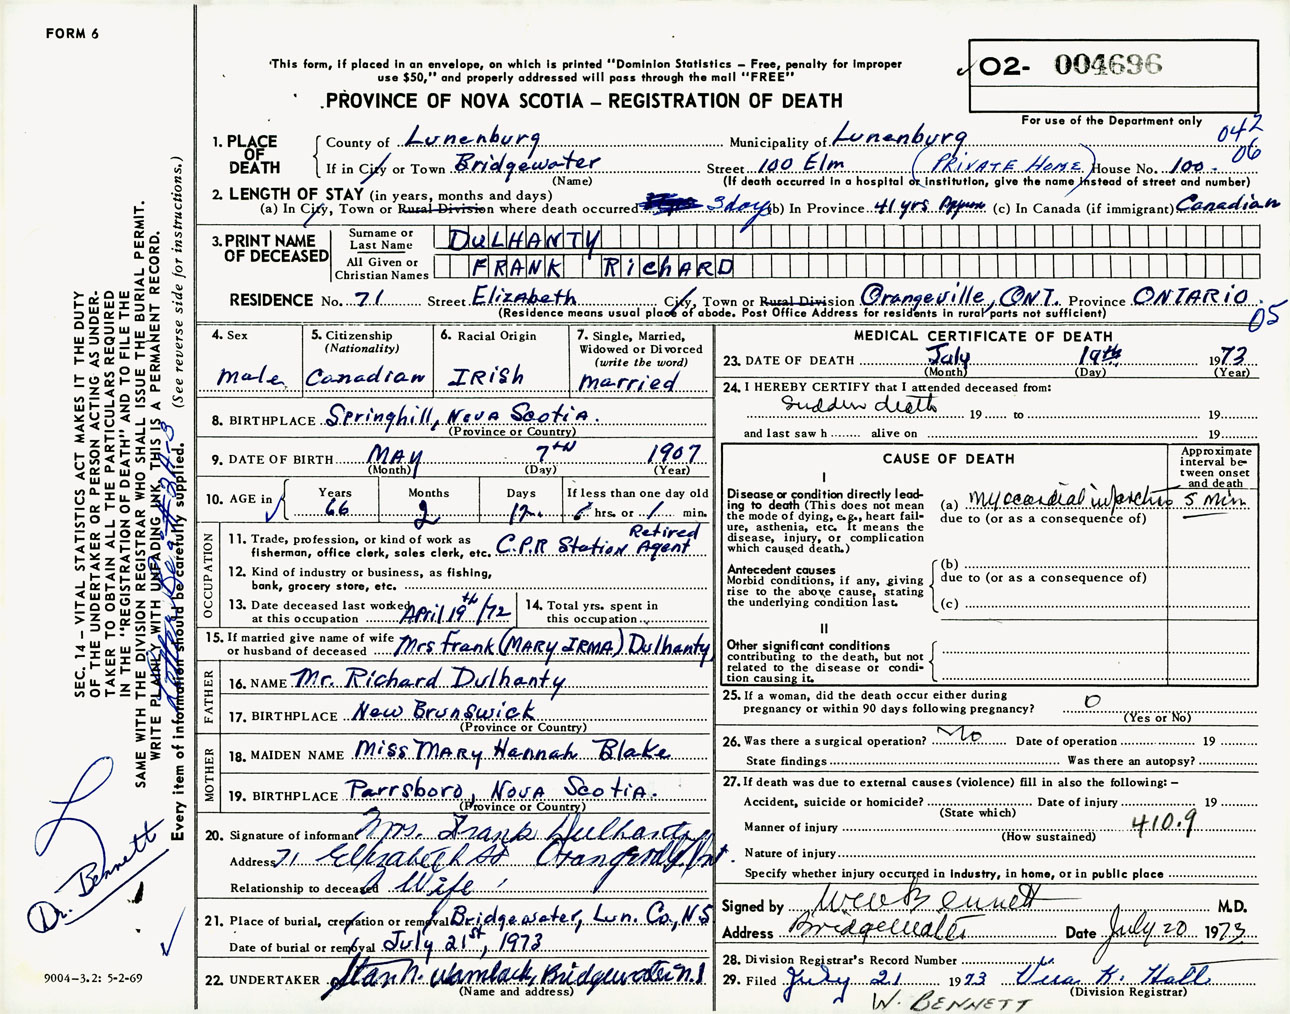 FORM 6
"This form, if placed in an envelope, on which is printed "Dominion Statistics – Free, penalty for improper
use $50," and properly addressed will pass through the mail "FREE"
PROVINCE OF NOVA SCOTIA – REGISTRATION OF DEATH
✓ O2- 004696
For use of the Department only
042
06
1. PLACE OF DEATH
County of Lunenburg Municipality of Lunenburg
If in City or Town Bridgewater Street 100 Elm (PRIVATE HOME) House No. 100.
(Name) (If death occurred in a hospital or institution, give the name instead of street and number)
2. LENGTH OF STAY (in years, months and days)
(a) In City, Town or Rural Division where death occurred 3 days (b) In Province 41 yrs Approx (c) In Canada (if immigrant) Canadian
3. PRINT NAME OF DECEASED
Surname or Last Name DULHANTY
All Given or Christian Names FRANK RIchARD
RESIDENCE No. 71 Street Elizabeth City, Town or Rural Division Orangeville, ONT. Province ONTARIO
(Residence means usual place of abode. Post Office Address for residents in rural parts not sufficient)
05
4. Sex
male
5. Citizenship
(Nationality)
Canadian
6. Racial Origin
IRISh
7. Single, Married,
Widowed or Divorced
(write the word)
married
8. BIRTHPLACE Springhill, Nova Scotia.
(Province or Country)
9. DATE OF BIRTH MAY 7th 1907
(Month) (Day) (Year)
10. AGE in ✓
Years Months Days If less than one day old
66 2 12 hrs. or min.
OCCUPATION
11. Trade, profession, or kind of work as
fisherman, office clerk, sales clerk, etc. C.P.R Station Agent Retired
12. Kind of industry or business, as fishing,
bank, grocery store, etc.
13. Date deceased last worked
at this occupation April 19th/72
14. Total yrs. spent in
this occupation
15. If married give name of wife
or husband of deceased Mrs Frank (MARY IRMA) Dulhanty
FATHER
16. NAME Mr. Richard Dulhanty
17. BIRTHPLACE New Brunswick
(Province or Country)
MOTHER
18. MAIDEN NAME Miss MARY Hannah Blake
19. BIRTHPLACE Parrsboro, Nova Scotia.
(Province or Country)
20. Signature of informant Mrs. Frank Dulhanty
Address 71 Elizabeth St Orangeville Ont.
Relationship to deceased Wife
21. Place of burial, cremation or removal Bridgewater, Lun. Co., N.S
Date of burial or removal July 21st, 1973
22. UNDERTAKER Bridgewater N.S
(Name and address)
MEDICAL CERTIFICATE OF DEATH
23. DATE OF DEATH July 19th 1973
(Month) (Day) (Year)
24. I HEREBY CERTIFY that I attended deceased from:
Sudden death 19 to 19
and last saw h alive on 19
CAUSE OF DEATH
Approximate
interval be-
tween onset
and death
I
Disease or condition directly lead-
ing to death (This does not mean
the mode of dying, e.g., heart fail-
ure, asthenia, etc. It means the
disease, injury, or complication
which caused death.)
(a) myocardial infarction 5 min
due to (or as a consequence of)
Antecedent causes
Morbid conditions, if any, giving
rise to the above cause, stating
the underlying condition last.
(b)
due to (or as a consequence of)
(c)
II
Other significant conditions
contributing to the death, but not
related to the disease or condi-
tion causing it.
25. If a woman, did the death occur either during
pregnancy or within 90 days following pregnancy? 0
(Yes or No)
26. Was there a surgical operation? No Date of operation 19
State findings Was there an autopsy?
27. If death was due to external causes (violence) fill in also the following: –
Accident, suicide or homicide? Date of injury 19
(State which)
Manner of injury 410.9
(How sustained)
Nature of injury
Specify whether injury occurred in industry, in home, or in public place
Signed by Bennett M.D.
Address Bridgewater Date July 20 1973
28. Division Registrar's Record Number
29. Filed July 21 1973 Vera K. Hall
(Division Registrar)
W. BENNETT
SEC. 14 – VITAL STATISTICS ACT MAKES IT THE DUTY
OF THE UNDERTAKER OR PERSON ACTING AS UNDER-
TAKER TO OBTAIN ALL THE PARTICULARS REQUIRED
IN THE "REGISTRATION OF DEATH" AND TO FILE THE
SAME WITH THE DIVISION REGISTRAR WHO SHALL ISSUE THE BURIAL PERMIT.
WRITE PLAINLY WITH UNFADING INK, THIS IS A PERMANENT RECORD.
Every item of information should be carefully supplied. (See reverse side for instructions.)
Dr. Bennett
✓
9004–3.2: 5-2-69